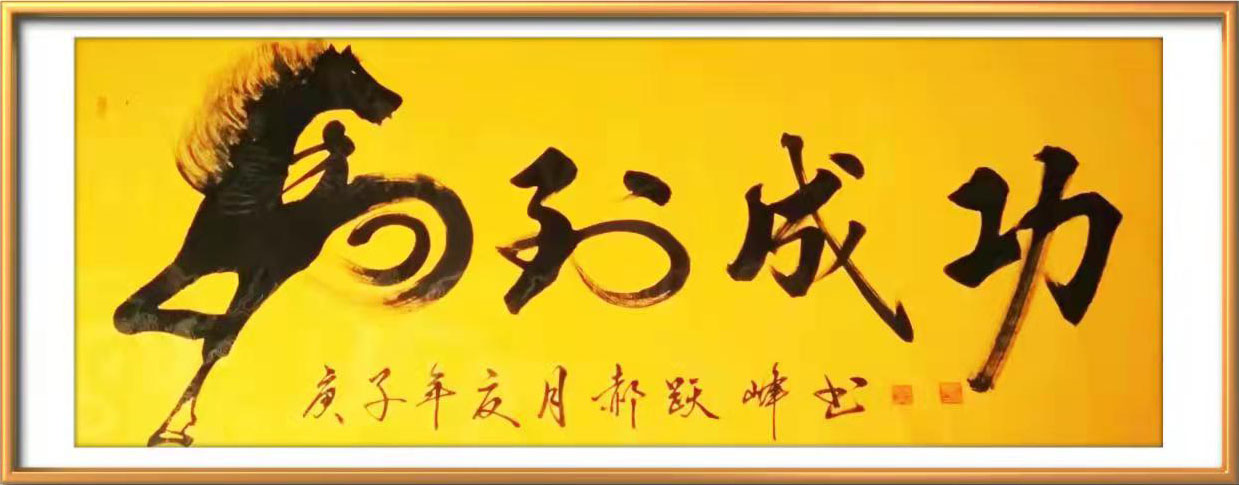 马到成功
庚子年亥月郝跃峰书